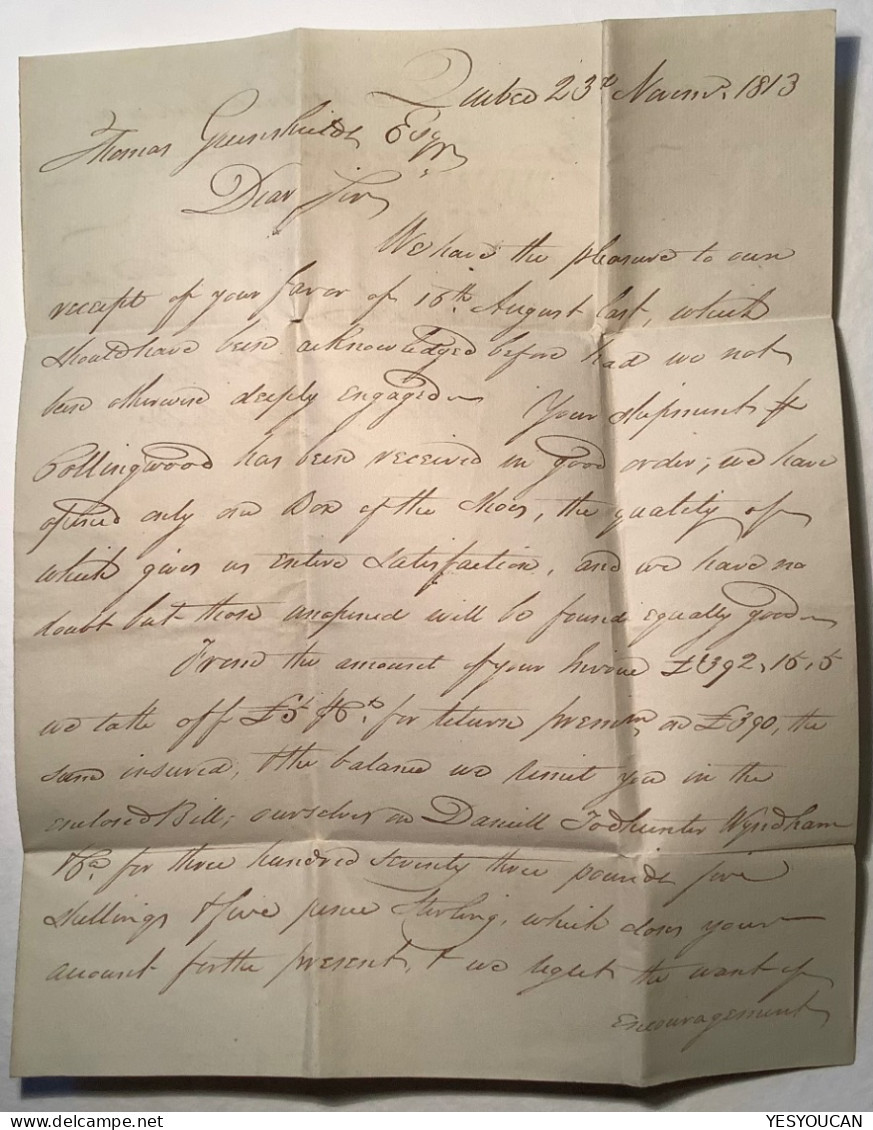 Quebec 23d Novemr. 1813
Thomas Greenshields Esqr.
Dear Sir
We have the pleasure to own
receipt of your favor of 16th. August last, which
should have been acknowledged before had we not
been otherwise deeply engaged
Your shipment
Collingwood has been received in good order; we have
opened only one Box of the Shoes, the quality of
which gives us entire satisfaction, and we have no
doubt but those unopened will be found equally good
From the amount of your Invoice £392,,15,,5
we take off £5 for return premium on £390, the
sum insured, & the balance we remit you in the
enclosed Bill; ourselves on Daniell Todhunter Wyndham
&Co. for three hundred seventy three pounds five
shillings & five pence Sterling, which closes your
account for the present, & we regret the want of
encouragement
YESYOUCAN
delcampe.net